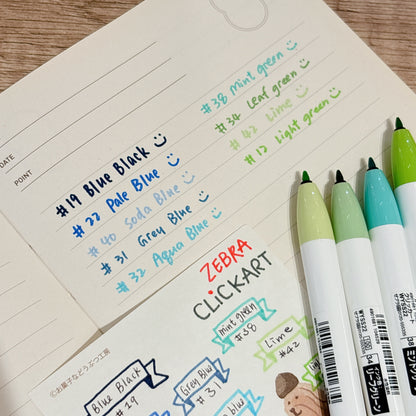 DATE
POINT
#19 Blue Black
#22 Pale Blue
#40 Soda Blue
#31 Grey Blue
#32 Aqua Blue
#38 mint green
#34 Leaf green
#42 Lime
#12 Light green
ZEBRA
CLiCKART
mint green
#38
Lime
#42
Grey Blue
#31
Blue Black
#19
©お菓子などうぶつ工房
WYSS22